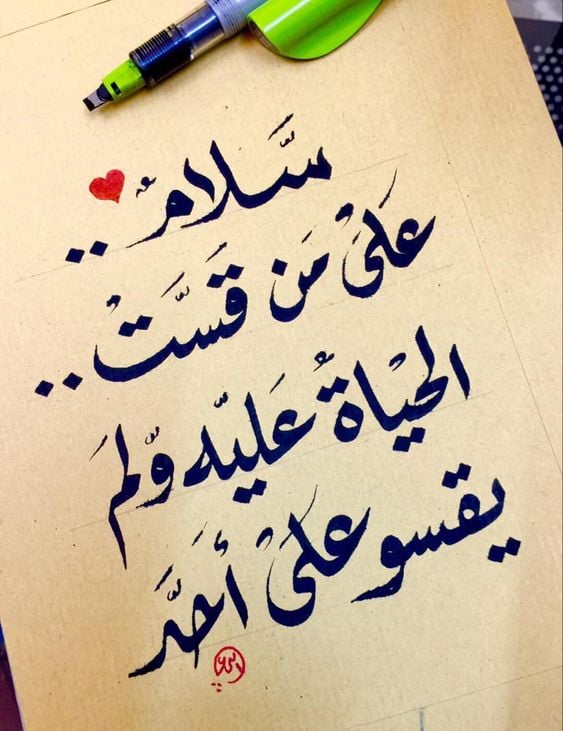 سَّلامٌ ..
عَلىَ مَن قَسَّتْ ..
الحيْاةُ عَليّه ولّمَ
يقسو عَلىْ أحَدَّ